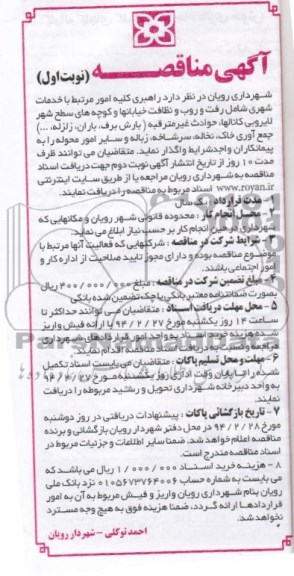 آگهی مناقصه (نوبت اول)
شهرداری رویان در نظر دارد راهبری کلیه امور مرتبط با خدمات
شهری شامل رفت و روب و نظافت خیابانها و کوچه های سطح شهر
لایروبی کانالها، حوادث غیرمترقبه (بارش برف، باران، زلزله، ...)
جمع آوری خاک، نخاله، سرشاخه، زباله و سایر امور محوله را به
پیمانکاران واجدشرایط واگذار نماید. متقاضیان می توانند ظرف
مدت ۱۰ روز از تاریخ انتشار آگهی نوبت دوم جهت دریافت اسناد
مناقصه به شهرداری رویان مراجعه یا از طریق سایت اینترنتی
www.royan.ir اسناد مربوط به مناقصه را دریافت نمایند.
- مدت قرارداد: یک سال
- محل انجام کار: محدوده قانونی شهر رویان و مکانهایی که
شهرداری در حین انجام کار بر حسب نیاز ابلاغ می نماید.
- شرایط شرکت در مناقصه: شرکتهایی که فعالیت آنها مرتبط با
موضوع مناقصه بوده و دارای مجوز تایید صلاحیت از اداره کار و
امور اجتماعی باشند.
۴- مبلغ تضمین شرکت در مناقصه: مبلغ ۴۰۰/۰۰۰/۰۰۰ ریال
بصورت ضمانتنامه معتبر بانکی یا چک تضمین شده بانکی
۵- محل مهلت دریافت اسناد: متقاضیان می توانند حداکثر تا
ساعت ۱۴ روز یکشنبه مورخ ۹۴/۲/۲۷ با ارائه فیش واریز
شده هزینه خرید اسناد به واحد امور قراردادهای شهرداری
مراجعه و نسبت به دریافت اسناد مناقصه اقدام نمایند.
۶- مهلت و محل تسلیم پاکات: متقاضیان می بایست اسناد تکمیل
شده را تا پایان وقت اداری روز یکشنبه مورخ ۹۴/۲/۲۷
به واحد دبیرخانه شهرداری تحویل و رسید مربوطه را دریافت
نمایند.
۷- تاریخ بازگشائی پاکات: پیشنهادات دریافتی در روز دوشنبه
مورخ ۹۴/۲/۲۸ در محل دفتر شهردار رویان بازگشائی و برنده
مناقصه اعلام خواهد شد. ضمنا سایر اطلاعات و جزئیات مربوط در
اسناد مناقصه مندرج است.
۸- هزینه خرید اسناد ۱/۰۰۰/۰۰۰ ریال می باشد که
می بایست به شماره حساب ۰۱۰۵۶۷۳۷۶۴۰۰۶ نزد بانک ملی
رویان بنام شهرداری رویان واریز و فیش مربوط به آن به امور
قراردادها ارائه گردد، ضمنا هزینه فوق به هیچ وجه مسترد
نخواهد شد.
احمد توکلی - شهردار رویان